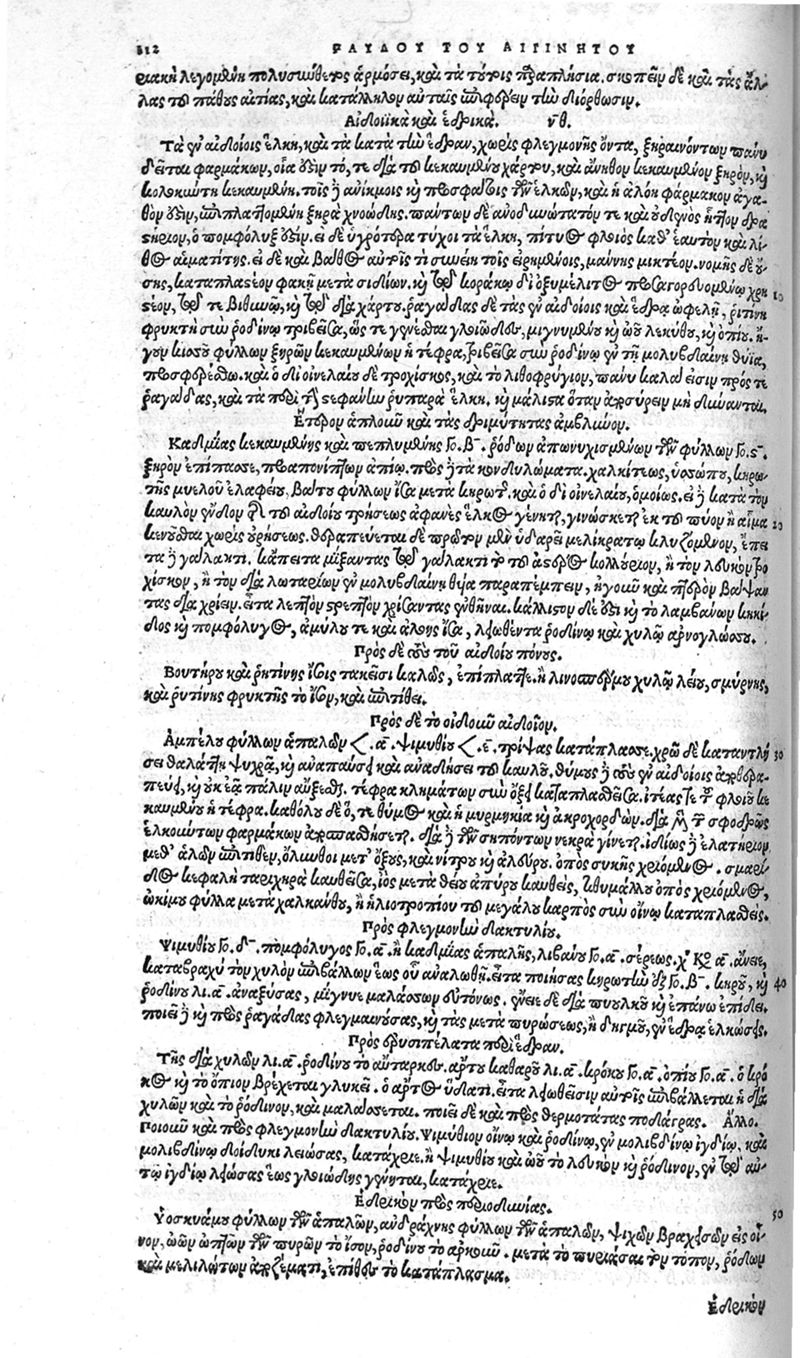 112 ΠΑΥΛΟΥ ΤΟΥ ΑΙΓΙΝΗΤΟΥ
ριακὴ λεγομένη πολυσπώθετος ἁρμόσει, καὶ τὰ τούτοις παραπλήσια. σκοπεῖν δὲ καὶ τὰς ἄλ-
λας τοῦ πάθους αἰτίας, καὶ κατάλληλον αὐταῖς ἐπιφέρειν τὴν διόρθωσιν.
Αἰδοιϊκὰ καὶ ἑδρικά. νθ.
Τὰ ἐν αἰδοίοις ἕλκη, καὶ τὰ κατὰ τὴν ἕδραν, χωρὶς φλεγμονῆς ὄντα, ξηραινόντων πάνυ
δεῖται φαρμάκων, οἷα ἐστὶν τό, τε διὰ τοῦ κεκαυμένου χάρτου, καὶ ἄνηθον κεκαυμένον ξηρὸν, καὶ
κολοκύντη κεκαυμένη. τοῖς δὲ ἀνίκμοις καὶ προσφάτοις τῶν ἑλκῶν, καὶ ἡ ἀλόη φάρμακον ἀγα-
θὸν ἐστὶν, ἐπιπλαττομένη ξηρὰ χνοώδης. πάντων δὲ ἀνοδυνώτατόν τε καὶ οὐδενὸς ἧττον δρα
στήριον, ὁ πομφόλυξ ἐστίν. εἰ δὲ ὑγρότερα τύχοι τὰ ἕλκη, πίτυος φλοιὸς καθ' ἑαυτὸν καὶ λί-
θος αἱματίτης. εἰ δὲ καὶ βάθος αὐτοῖς τι συνείη τοῖς εἰρημένοις, μάννης μικτέον. νομῆς δὲ οὔ-
σης, καταπλαστέον φακῇ μετὰ σιδίων. καὶ τῷ κοράκῳ δι' ὀξυμέλιτος προσαγορευομένῳ χρη
στέον, τῷ τε βιθυνῷ, καὶ τῷ διὰ χάρτου. ῥαγάδας δὲ τὰς ἐν αἰδοίοις καὶ ἕδρᾳ ὠφελεῖ, ῥιτίνη
φρυκτὴ σὺν ῥοδίνῳ τριβεῖσα, ὥς τε γενέσθαι γλοιῶδες, μιγνυμένου καὶ ὠοῦ λεκύθου, καὶ ὀπίου. ἤ-
γουν κισσοῦ φύλλων ξηρῶν κεκαυμένων ἡ τέφρα, τριβεῖσα σὺν ῥοδίνῳ ἐν τῇ μολυβδαίνῃ θυίᾳ,
προσφερέσθω. καὶ ὁ δι' οἰνελαίου δὲ τροχίσκος, καὶ τὸ λιθοφρύγιον, πάνυ καλά εἰσιν πρός τε
ῥαγάδας, καὶ τὰ περὶ τὴν στεφάνην ῥυπαρὰ ἕλκη. καὶ μάλιστα ὅταν ἀποσύρειν μὴ δύνανται.
Ἕτερον ἁπλοῦν καὶ τὰς δριμύτητας ἀμβλῦνον.
Καδμίας κεκαυμένης καὶ πεπλυμένης Γο. β. ῥόδων ἀπωνυχισμένων τῶν φύλλων Γο. ϛ.
ξηρὸν ἐπίπασσε, προαπονίπτων ἀπίῳ. πρὸς δὲ τὰ κονδυλώματα. χαλκίτεως, ὑσώπου, κηρω-
τῆς μυελοῦ ἐλαφείου, βάτου φύλλων ἴσα μετὰ κηρωτ. καὶ ὁ δι' οἰνελαίου, ὁμοίως. εἰ δὲ κατὰ τὸν
καυλὸν ἔνδον τῆς τοῦ αἰδοίου τρήσεως ἀφανὲς ἕλκος γένηται, γινώσκεται ἐκ τοῦ πύον ἢ αἷμα 20
κενοῦσθαι χωρὶς οὐρήσεως. θεραπεύεται δὲ πρῶτον μὲν ὑδαρεῖ μελικράτῳ κλυζόμενον, ἔπει
τα δὲ γάλακτι. κἄπειτα μίξαντας τῷ γάλακτι τὸ τοῦ ἀστέρος κολλύριον, ἢ τὸν λευκὸν τρο
χίσκον, ἢ τὸν διὰ λωταρίων ἐν μολυβδαίνῃ θυίᾳ παραπέμπειν, ἤγουν καὶ πτερὸν βάψαν
τας διαχρίειν. εἶτα λεπτὸν στρεπτὸν χρίσαντας ἐνθεῖναι. κάλλιστον δέ ἐστι καὶ τὸ λαμβάνων κηκί-
δος καὶ πομφόλυγος, ἀμύλου τε καὶ ἀλόης ἴσα, λειωθέντα ῥοδίνῳ καὶ χυλῷ ἀρνογλώσσου.
Πρὸς δὲ τοὺς τοῦ αἰδοίου πόνους.
Βουτήρου καὶ ῥητίνης ἴσοις τακεῖσι καλῶς, ἐπίπλαττε. ἢ λινοσπέρμου χυλῷ λείου, σμύρνης,
καὶ ῥυτίνης φρυκτῆς τὸ ἴσον, καὶ ἐπιτίθει.
Πρὸς δὲ τὸ οἰδοῦν αἰδοῖον.
Ἀμπέλου φύλλων ἁπαλῶν <. α. ψιμυθίου <. ε. τρίψας κατάπλασσε. χρῶ δὲ καταντλή 30
σει θαλάττῃ ψυχρᾷ, καὶ ἀναπαύσει καὶ ἀναδήσει τοῦ καυλοῦ. θύμους δὲ τοὺς ἐν αἰδοίοις ἀποθερα-
πεύει, καὶ οὐκ ἐᾷ πάλιν αὔξεσθαι. τέφρα κλημάτων σὺν ὄξει καταπλασθεῖσα. ἰτέας τε τοῦ φλοιοῦ κε
καυμένου ἡ τέφρα. καθόλου δὲ ὅ, τε θύμος καὶ ἡ μυρμηκία καὶ ἀκροχορδὼν. διὰ μὲν τῶν σφοδρῶς
ἑλκούντων φαρμάκων ἀποσπασθήσεται. διὰ δὲ τῶν σηπόντων νεκρὰ γίνεται. ἰδίως δὲ ἐλατήριον
μεθ' ἁλῶν ἐπιτιθέμ, ὄλυνθοι μετ' ὄξους, καὶ νίτρου καὶ ἀλεύρου. ὀπὸς συκῆς χριόμενος. σμαρί-
δος κεφαλὴ ταριχηρὰ καυθεῖσα, ἰὸς μετὰ θείου ἀπύρου καυθεὶς, τιθυμάλλου ὀπὸς χριόμενος,
ὠκίμου φύλλα μετὰ χαλκάνθου, ἢ ἡλιοτροπίου τοῦ μεγάλου καρπὸς σὺν οἴνῳ καταπλασθείς.
Πρὸς φλεγμονὴν δακτυλίου.
Ψιμυθίου Γο. δ. πομφόλυγος Γο. α. ἢ καδμίας ἁπαλῆς, λιβάνου Γο. α. σέρεως. χ. Κο α. ἄνειε,
καταβραχὺ τὸν χυλὸν ἐπιβάλλων ἕως οὗ ἀναλωθῇ. εἶτα ποιήσας κηρωτὴν ἐκ Γο. β. κηροῦ, καὶ 40
ῥοδίνου λι. α. ἀναξύσας, μίγνυε μαλάσσων εὐτόνως. ἔνιε δὲ διὰ πυουλκοῦ καὶ ἐπάνω ἐπίθει.
ποιεῖ δὲ καὶ πρὸς ῥαγάδας φλεγμαινούσας, καὶ τὰς μετὰ πυρώσεως, ἢ δηγμοῦ, ἐν ἕδρᾳ ἑλκώσεις.
Πρὸς ἐρυσιπέλατα περὶ ἕδραν.
Τῆς διὰ χυλῶν λι. α. ῥοδίνου τὸ αὔταρκες. ἄρτου καθαροῦ λι. α. κρόκου Γο. α. ὀπίου Γο. α. ὁ κρό
κος καὶ τὸ ὄπιον βρέχεται γλυκεῖ. ὁ ἄρτος ὕδατι. εἶτα λειωθεῖσιν αὐτοῖς ἐπιβάλλεται ἡ διὰ
χυλῶν καὶ τὸ ῥόδινον, καὶ μαλάσσεται. ποιεῖ δὲ καὶ πρὸς θερμοτάτας ποδάγρας. Ἄλλο.
ποιοῦν καὶ πρὸς φλεγμονὴν δακτυλίου. Ψιμύθιον οἴνῳ καὶ ῥοδίνῳ, ἐν μολιβδίνῳ ἰγδίῳ, καὶ
μολιβδίνῳ δοίδυκι λειώσας, κατάχριε. ἢ ψιμυθίου καὶ ὠοῦ τὸ λευκὸν καὶ ῥόδινον, ἐν τῷ αὐ-
τῷ ἰγδίῳ λειώσας ἕως γλοιώδης γένηται, κατάχριε.
Ἑδρικὸν πρὸς περιωδυνίας. 50
Ὑοσκυάμου φύλλων τῶν ἁπαλῶν, ἀνδράχνης φύλλων τῶν ἁπαλῶν, ψιχῶν βραχεισῶν εἰς οἶ-
νον, ὠῶν ὀπτῶν τῶν πυρῶν τὸ ἴσον, ῥοδίνου τὸ ἀρκοῦν. μετὰ τὸ πυριᾶσαι τὸν τόπον, ῥόδων
καὶ μελιλώτων ἀποζέματι, ἐπίθες τὸ κατάπλασμα.
Ἑδρικὸν